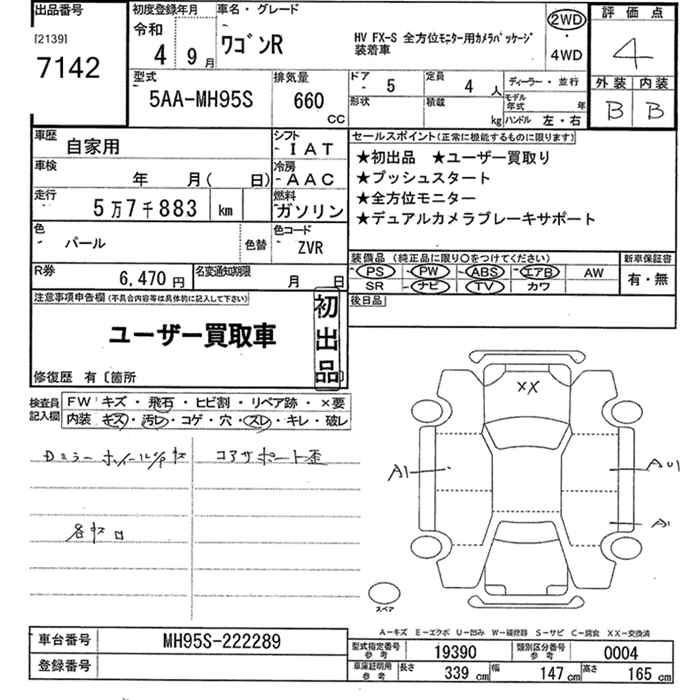 出品番号
[2139]
7142
初度登録年月
令和
4年 9月
車名・グレード
ワゴンR
HV FX-S 全方位モニター用カメラパッケージ
装着車
2WD
・
4WD
評価点
4
外装 内装
B B
型式
5AA-MH95S
排気量
660
CC
ドア
5
形状
定員
4 人
積載
kg
ディーラー・並行
モデル
年式 年
ハンドル 左・右
車歴
自家用
シフト
IAT
車検
年 月( 日)
冷房
AAC
走行
5万7千883 km
燃料
ガソリン
色
パール
色替
色コード
ZVR
R券
6,470 円
名変通知期限
月 日
セールスポイント(正常に機能するものに限ります)
★初出品 ★ユーザー買取り
★プッシュスタート
★全方位モニター
★デュアルカメラブレーキサポート
装備品 (純正品に限り○をつけてください)
PS PW ABS エアB AW
SR ナビ TV カワ
新車保証書
有・無
後日品
注意事項申告欄(不具合内容等は具体的に記入して下さい)
ユーザー買取車
初出品
修復歴 有〔箇所
検査員
記入欄
FW キズ・飛石・ヒビ割・リペア跡・×要
内装 キズ・汚レ・コゲ・穴・スレ・キレ・破レ
コアサポート歪
XX
A1
AU1
A1
スペア
A-キズ E-エクボ U-凹み W-補修跡 S-サビ C-腐食 XX-交換済
車台番号
MH95S-222289
登録番号
型式指定番号
参考
19390
類別区分番号
参考
0004
車庫証明用
参考
長さ 339 cm 幅 147 cm 高さ 165 cm